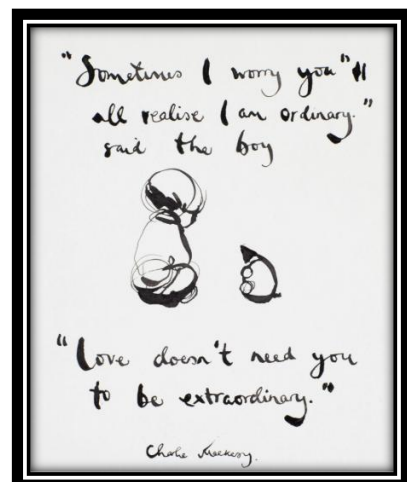 "Sometimes I worry you"ll
all realise I am ordinary."
said the boy
"Love doesn't need you
to be extraordinary."
Charlie Mackesy.